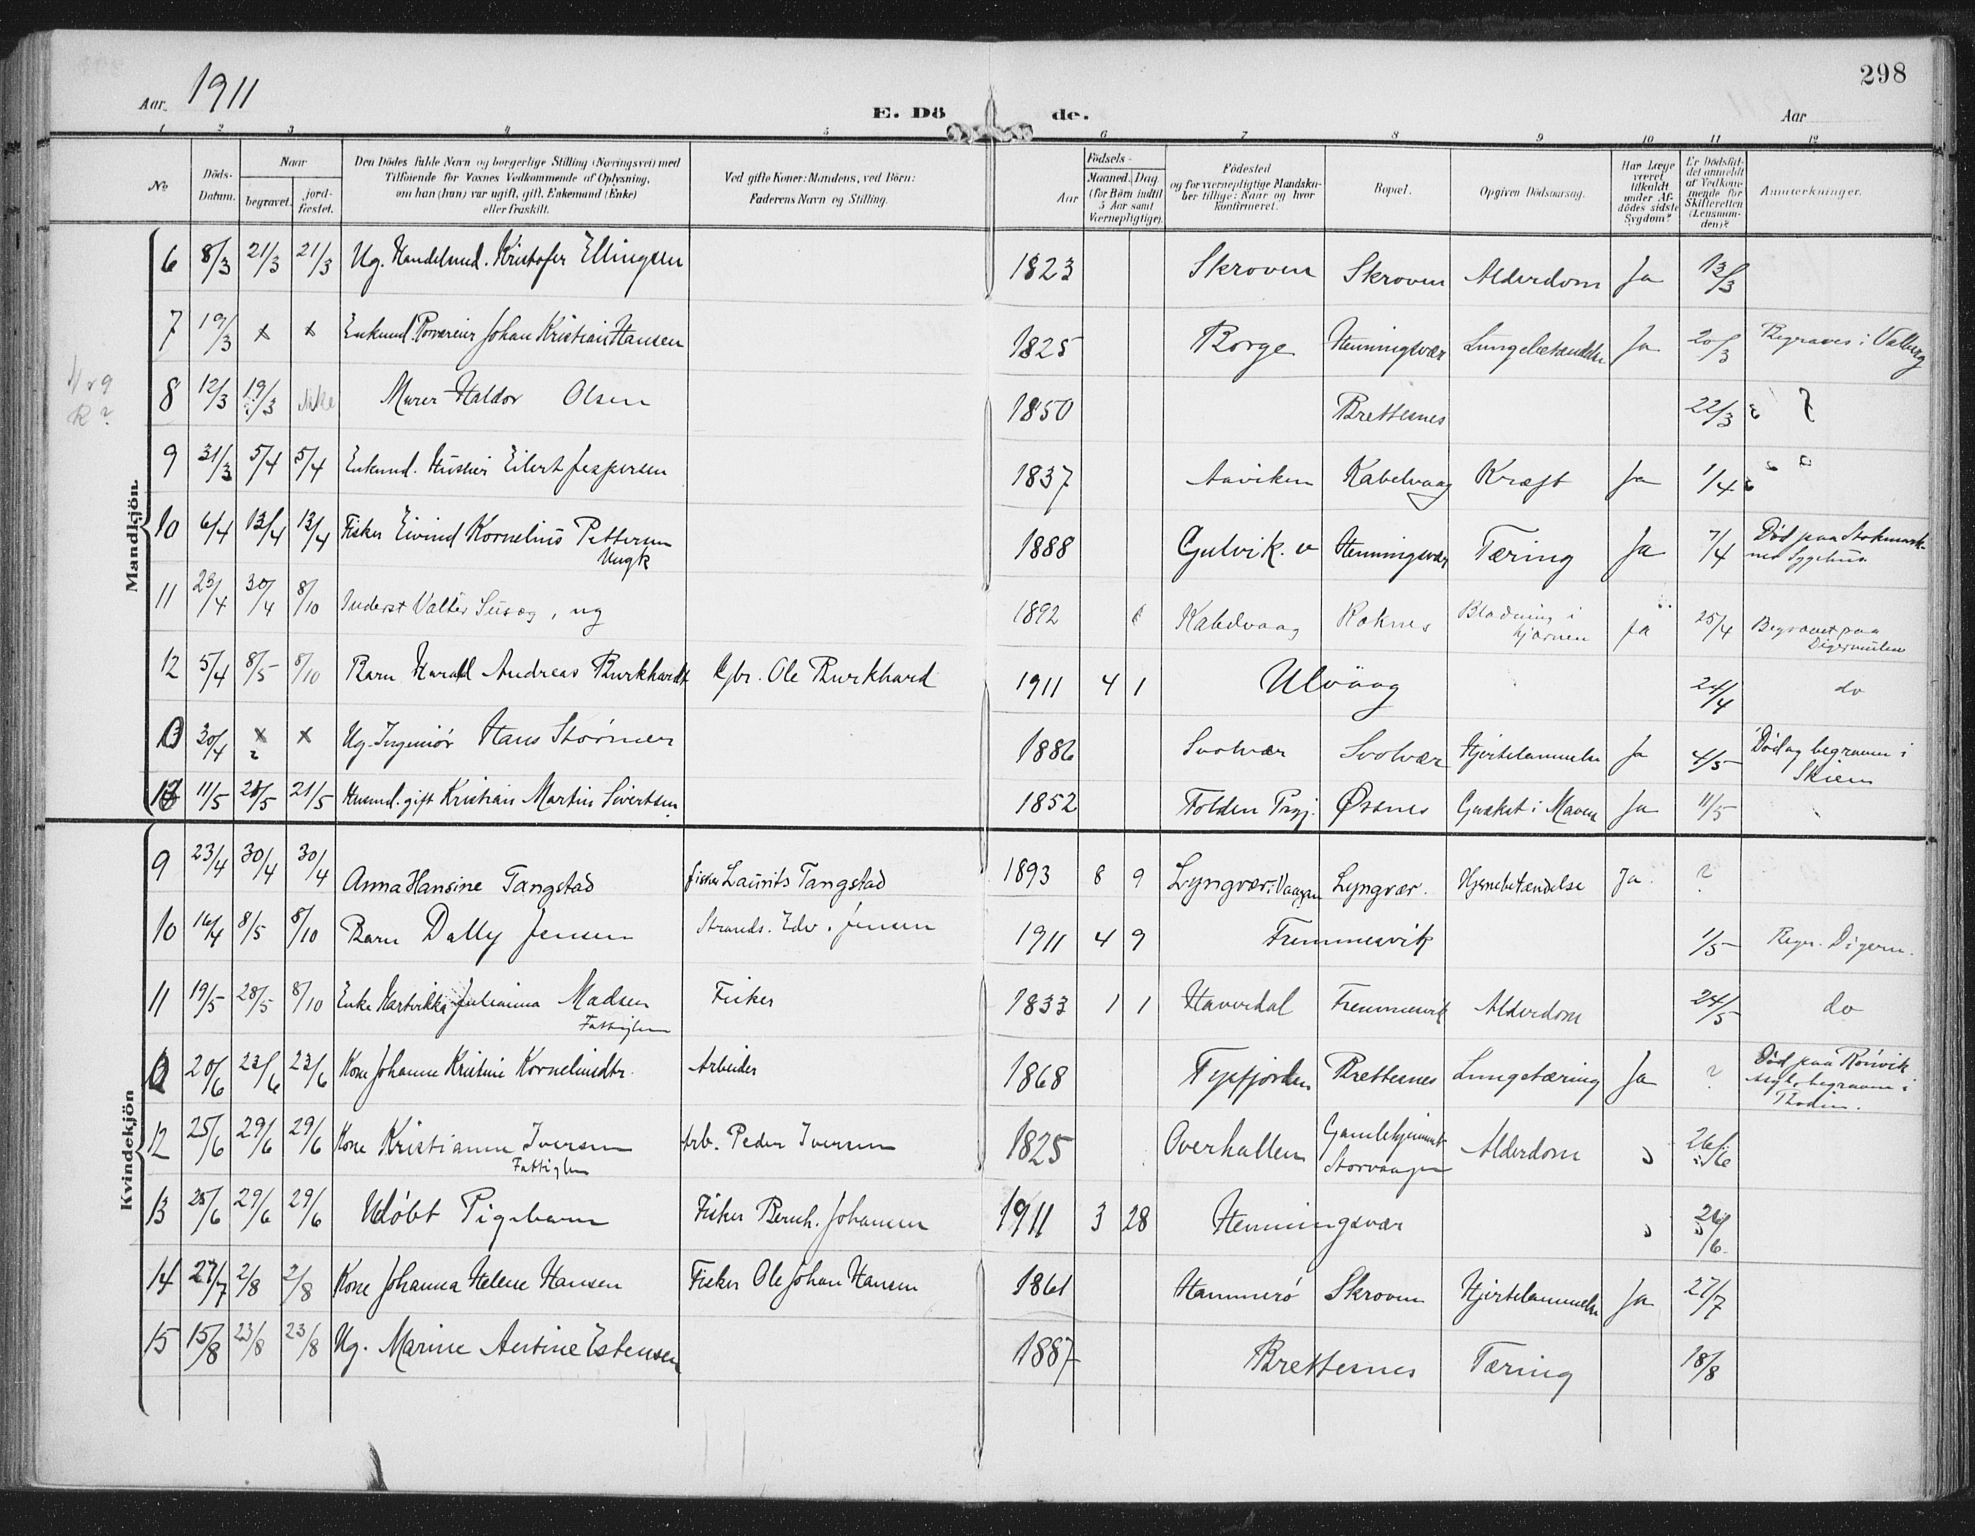 298
Aar 1911 E. Dö de. Aar
1 2 3 4 5 6 7 8 9 10 11 12
No Döds-Datum. Naar begravet. jord-fæstet. Den Dödes fulde Navn og borgerlige Stilling (Næringsvei) med Tilföiende for Voxnes Vedkommende af Oplysning, om han (hun) var ugift, gift, Enkemand (Enke) eller fraskilt. Ved gifte Koner: Mandens, ved Börn: Faderens Navn og Stilling. Födsels- Aar Maaned. Dag (for Börn indtil 5 Aar samt Værnepligtige). Födested og for værnepligtige Mandskaber tillige: Naar og hvor konfirmeret. Bopæl. Opgiven Dödsaarsag. Har Læge været tilkaldt under Afdödes sidste Sygdom? Er Dödsfaldet anmeldt af Vedkommende for Skifteretten (Lensmanden)? Anmerkninger.
Mandkjön.
6 8/3 21/3 21/3 Ug. Handelsmd. Kristofer Ellingsen 1823 Skroven Skroven Alderdom Ja 13/3
7 19/3 x x Enkemd. Johan Kristian Hansen 1825 Borge Henningsvær Lungebetændelse Ja 20/3 Begraves i Valberg
8 12/3 19/3 ikke Murer Haldor Olsen 1850 Brettesnes 22/3
9 31/3 5/4 5/4 Enkemd. Eilert Jespersen 1837 Aaviken Kabelvaag Kræft Ja 1/4
10 6/4 13/4 13/4 Fisker Eivind Kornelius Pettersen Ungk 1888 Gulvik. v Henningsvær Tæring Ja 7/4 Död paa Stokmarknes Sygehus
11 23/4 30/4 8/10 Inderst Valter , ug 1892 Kabelvaag Roknes Blødning i hjernen Ja 25/4 Begravet paa Digermulen
12 5/4 8/5 8/10 Barn Harald Andreas Burkhardt Gbr. Ole Burkhard 1911 4 1 Ulvaag 24/4 do
13 30/4 x x Ug. Ingeniør Hans Størmer 1886 Svolvær Svolvær Hjertelammelse Ja 4/5 Död og begraven i Skien
11/5 21/5 21/5 Husmd. gift Kristian Martin Sivertsen 1852 Folden Prgj. Ørsnes Gvækst i Maven Ja 11/5
Kvindekjön
9 23/4 30/4 30/4 Anna Hansine Tangstad fisker Laurits Tangstad 1893 8 9 Lyngvær i Vaagan Lyngvær. Hjernebetændelse Ja ?
10 16/4 8/5 8/10 Barn Dally Jensen Strands. Edv. Jensen 1911 4 9 Fremmesvik 1/5 Begr. Digerm.
11 19/5 28/5 8/10 Enke Hartvikka Julianna Madsen Fattiglem Fisker 1833 1 1 Haverdal Fremmesvik Alderdom 24/5 do
20/6 23/6 23/6 Kone Johanne Kristine Kornelinsdtr. Arbeider 1868 Typfjorden Brettesnes Lungetæring Ja ? Död paa Rönvik Asyl & begraven i Bodin.
12 25/6 29/6 29/6 Kone Kristianne Iversen Fattiglem Arb. Peder Iversen 1825 Overhallen Gamlehjemmet Storvaagen Alderdom 26/6
13 25/6 29/6 29/6 Udöbt Pigebarn Fisker Bernh. Johansen 1911 3 28 Henningsvær 26/6
14 27/7 2/8 2/8 Kone Johanna Helene Hansen Fisker Ole Johan Hansen 1861 Hammerö Skroven Hjertelammelse Ja 27/7
15 15/8 23/8 23/8 Ug. Marine Antine Estensen 1887 Brettesnes Tæring 18/8